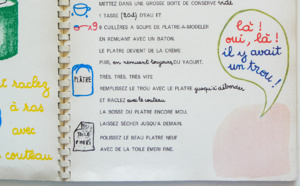 METTEZ DANS UNE GROSSE BOITE DE CONSERVE vide
1 TASSE (BOL) D'EAU ET
9 CUILLÈRES A SOUPE DE PLATRE-A-MODELER
EN REMUANT AVEC UN BATON.
LE PLATRE DEVIENT DE LA CRÈME
PUIS, en remuant toujours, DU YAOURT.
TRÈS, TRÈS, TRÈS VITE
REMPLISSEZ LE TROU AVEC LE PLATRE jusqu'à déborder
ET RACLEZ avec le couteau
LA BOSSE DU PLATRE ENCORE MOLL
LAISSEZ SÉCHER JUSQU'A DEMAIN.
POLISSEZ LE BEAU PLATRE NEUF
AVEC DE LA TOILE EMERI FINE.
PLÂTRE
TOILE
là !
oui, là !
il y avait
un trou !
et raclez
à ras
avec
couteau